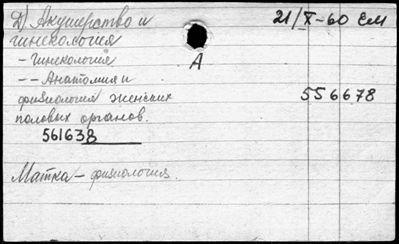 Д) Акушерство и 21/X-60 ЕМ
гинекология
- Гинекология А
-- Анатомия и
физиология женских 556678
половых органов.
561638
Матка - физиология.